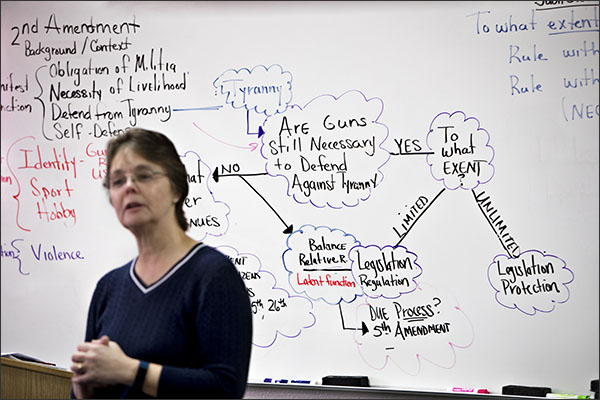 2nd Amendment
Background / Context
Obligation of Militia
Necessity of Livelihood
Defend from Tyranny
Self-Defens
Identity - Gu
Sport
Hobby
Violence
Tyranny
Are Guns
Still Necessary
to Defend
Against Tyranny
NO
YES
To
what
EXENT
?
LIMITED
UNLIMITED
NUES
5th, 26th
Balance
Relative R
Latent function
Legislation
Regulation
Legislation
Protection
DUE Process?
5th AMENDMENT
To what extent
Rule with
Rule with